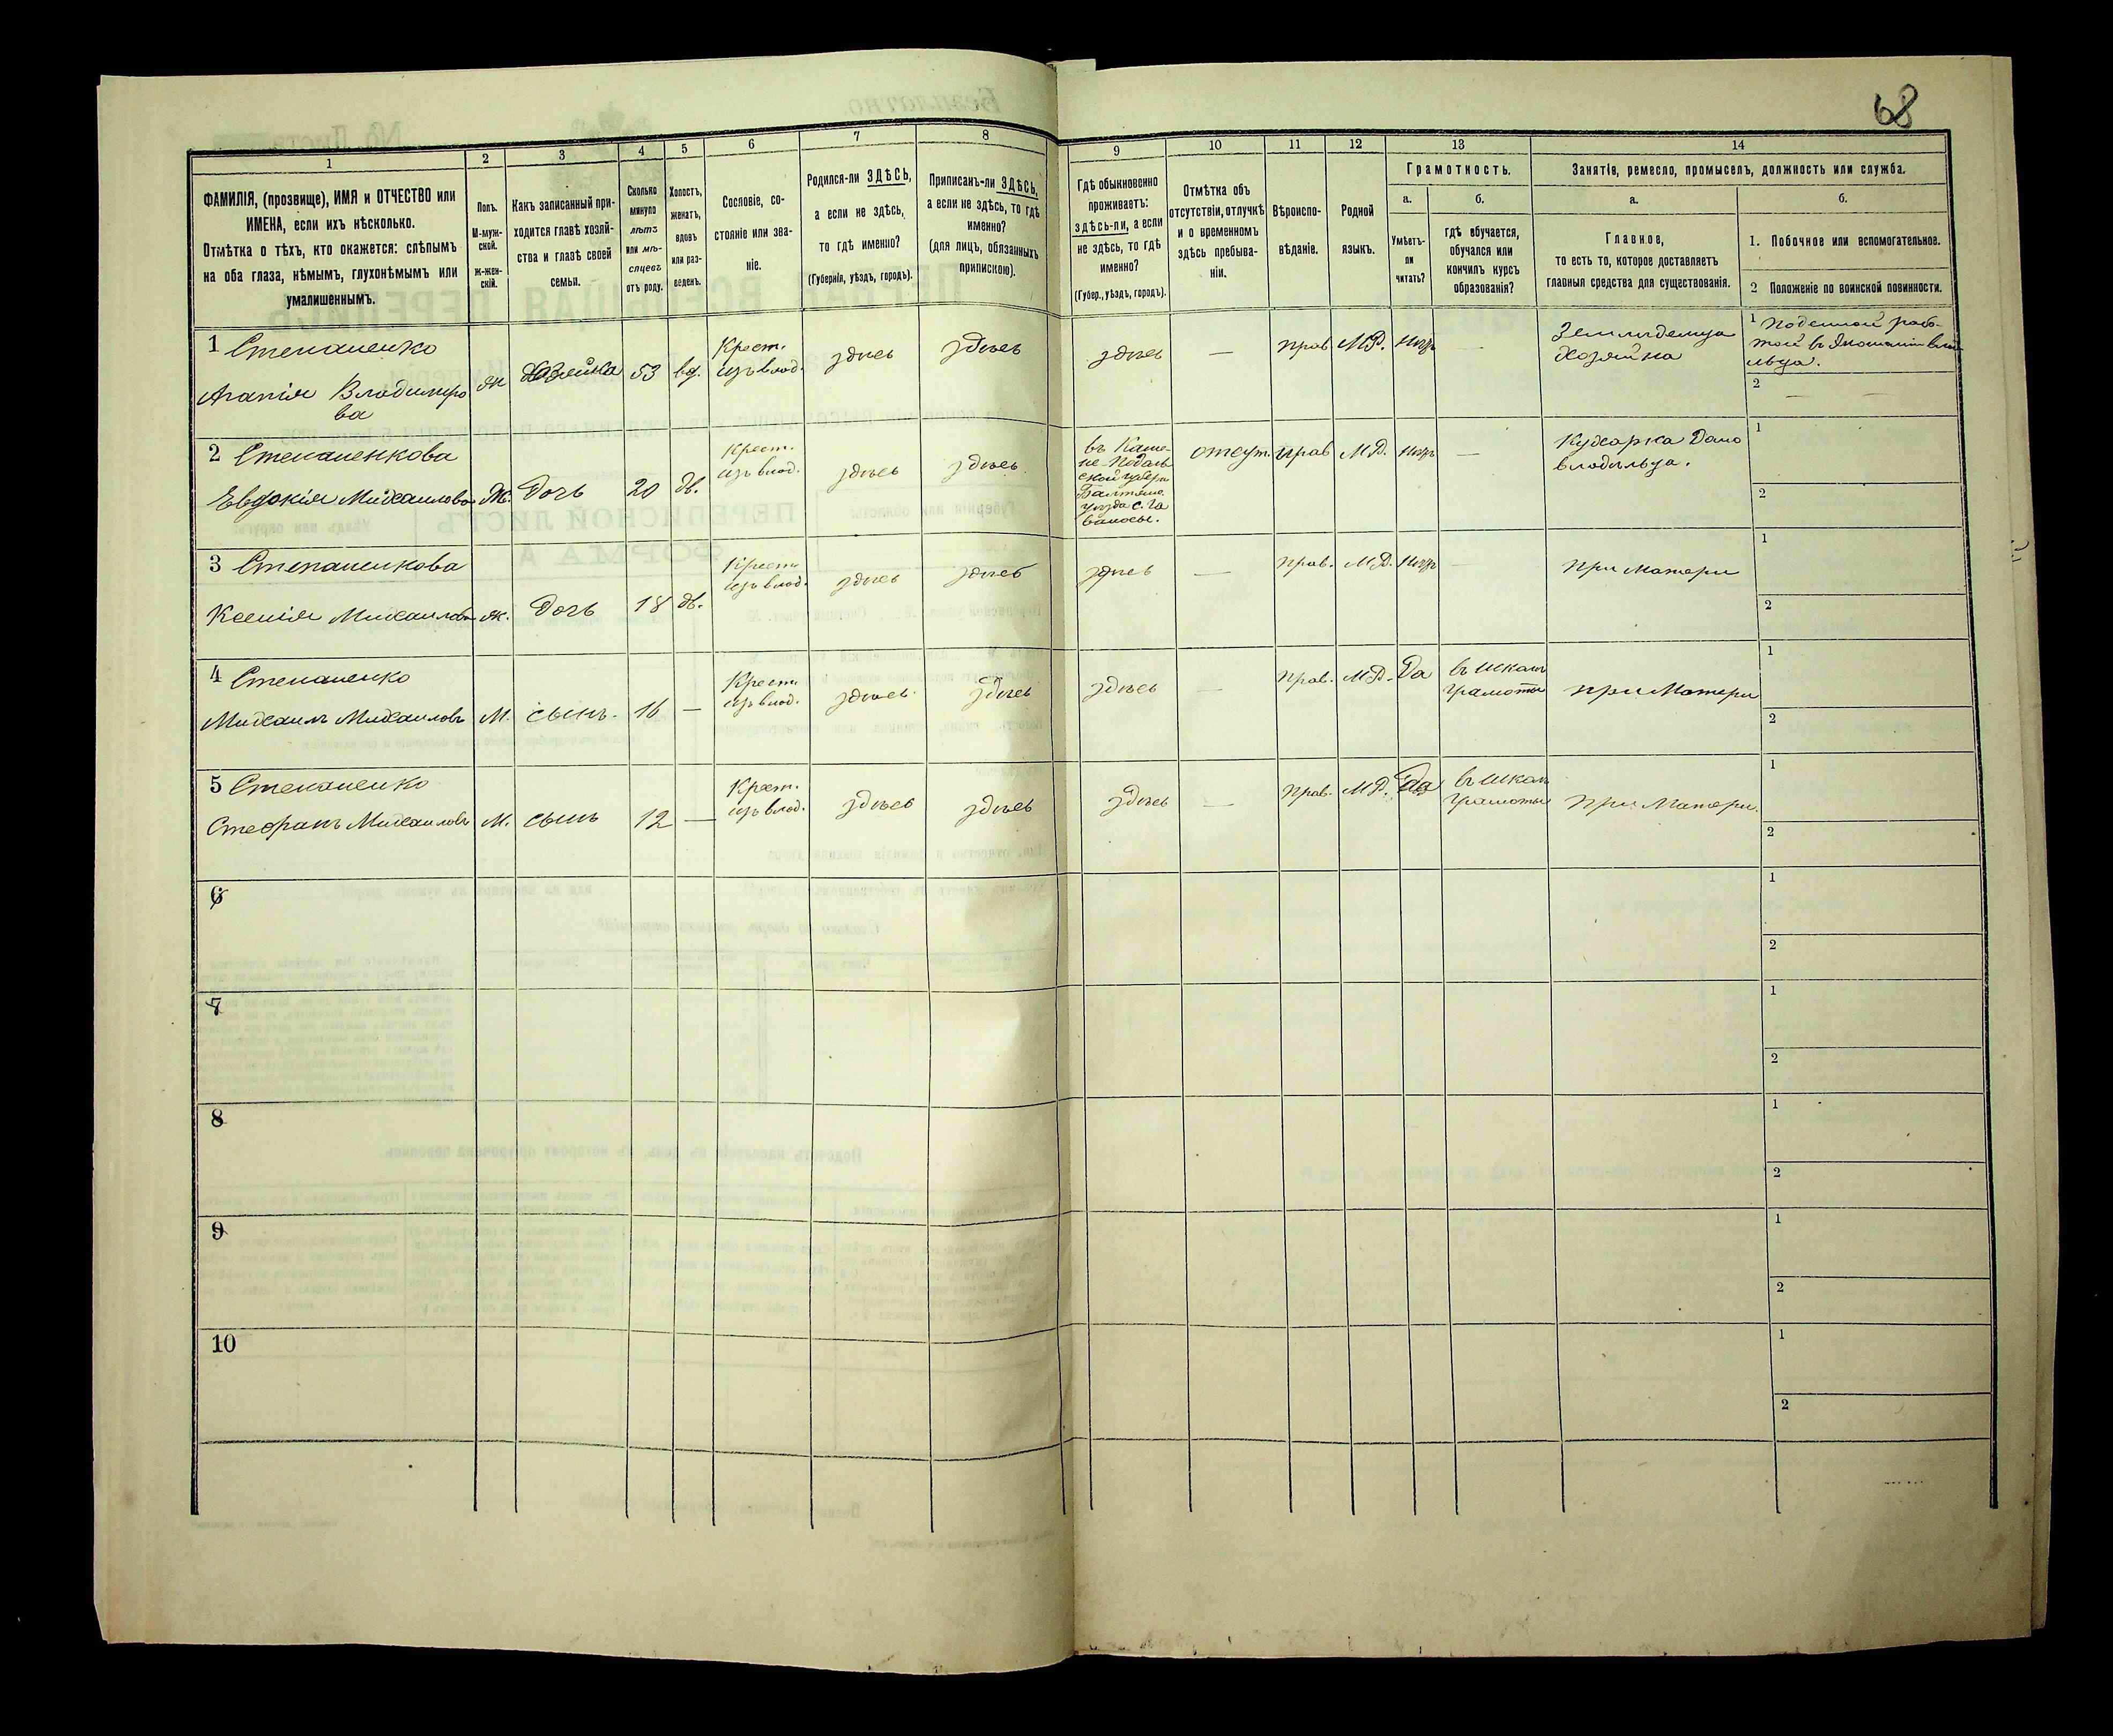 68
1 2 3 4 5 6 7 8 9 10 11 12 13 14
ФАМИЛІЯ, (прозвище), ИМЯ и ОТЧЕСТВО или
ИМЕНА, если ихъ нѣсколько.
Отмѣтка о тѣхъ, кто окажется: слѣпымъ
на оба глаза, нѣмымъ, глухонѣмымъ или
умалишеннымъ.
Полъ.
М-муж-
ской.
ж-жен-
скій.
Какъ записанный при-
ходится главѣ хозяй-
ства и главѣ своей
семьи.
Сколько
минуло
лѣтъ
или мѣ-
сяцевъ
отъ роду.
Холостъ,
женатъ,
вдовъ
или раз-
веденъ.
Сословіе, со-
стояніе или зва-
ніе.
Родился-ли ЗДѢСЬ,
а если не здѣсь,
то гдѣ именно?
(Губернія, уѣздъ, городъ).
Приписанъ-ли ЗДѢСЬ,
а если не здѣсь, то гдѣ
именно?
(для лицъ, обязанныхъ
припискою).
Гдѣ обыкновенно
проживаетъ:
здѣсь-ли, а если
не здѣсь, то гдѣ
именно?
(Губер., уѣздъ, городъ).
Отмѣтка объ
отсутствіи, отлучкѣ
и о временномъ
здѣсь пребыва-
ніи.
Вѣроиспо-
вѣданіе.
Родной
языкъ.
Грамотность.
а.
Умѣетъ-
ли
читать?
б.
гдѣ обучается,
обучался или
кончилъ курсъ
образованія?
Занятіе, ремесло, промыселъ, должность или служба.
а.
Главное,
то есть то, которое доставляетъ
главныя средства для существованія.
б.
1. Побочное или вспомогательное.
2 Положеніе по воинской повинности.
1 Степаненко
Агапія Владимиро
ва
ж Хозяйка 53 вд.
Крест.
изъ влад.
здѣсь здѣсь здѣсь — прав М.Р. нѣтъ —
Земледелица
Хозяйка
1 Поденной рабо-
той в Экономии вла
льца.
2 — —
2 Степаненкова
Евдокія Михаилова Ж. Дочь 20 дв.
Крест.
изъ влад.
здѣсь здѣсь
въ Каме-
не-Подоль
ской губерн
Балтско.
уезда с. Га
отсут. прав М.Р. нѣтъ —
Кухарка Домо
владѣльца.
1
2
3 Степаненкова
Ксенія Михаилова ж. Дочь 18 дв.
Крест
изъ влад.
здѣсь здѣсь здѣсь — прав. М.Р. нѣтъ — при матери
1
2
4 Степаненко
Михаилъ Михаиловъ М. сынъ. 16 —
Крест.
изъ влад.
здѣсь здѣсь здѣсь — прав. М.Р. Да
въ школѣ
грамоты
при Матери
1
2
5 Степаненко
Стефанъ Михаиловъ М. сынъ 12 —
Крест.
изъ влад.
здѣсь здѣсь здѣсь — Прав. М.Р. Да
въ школѣ
грамоты
При Матери.
1
2
6
1
2
7
1
2
8
1
2
9
1
2
10
1
2